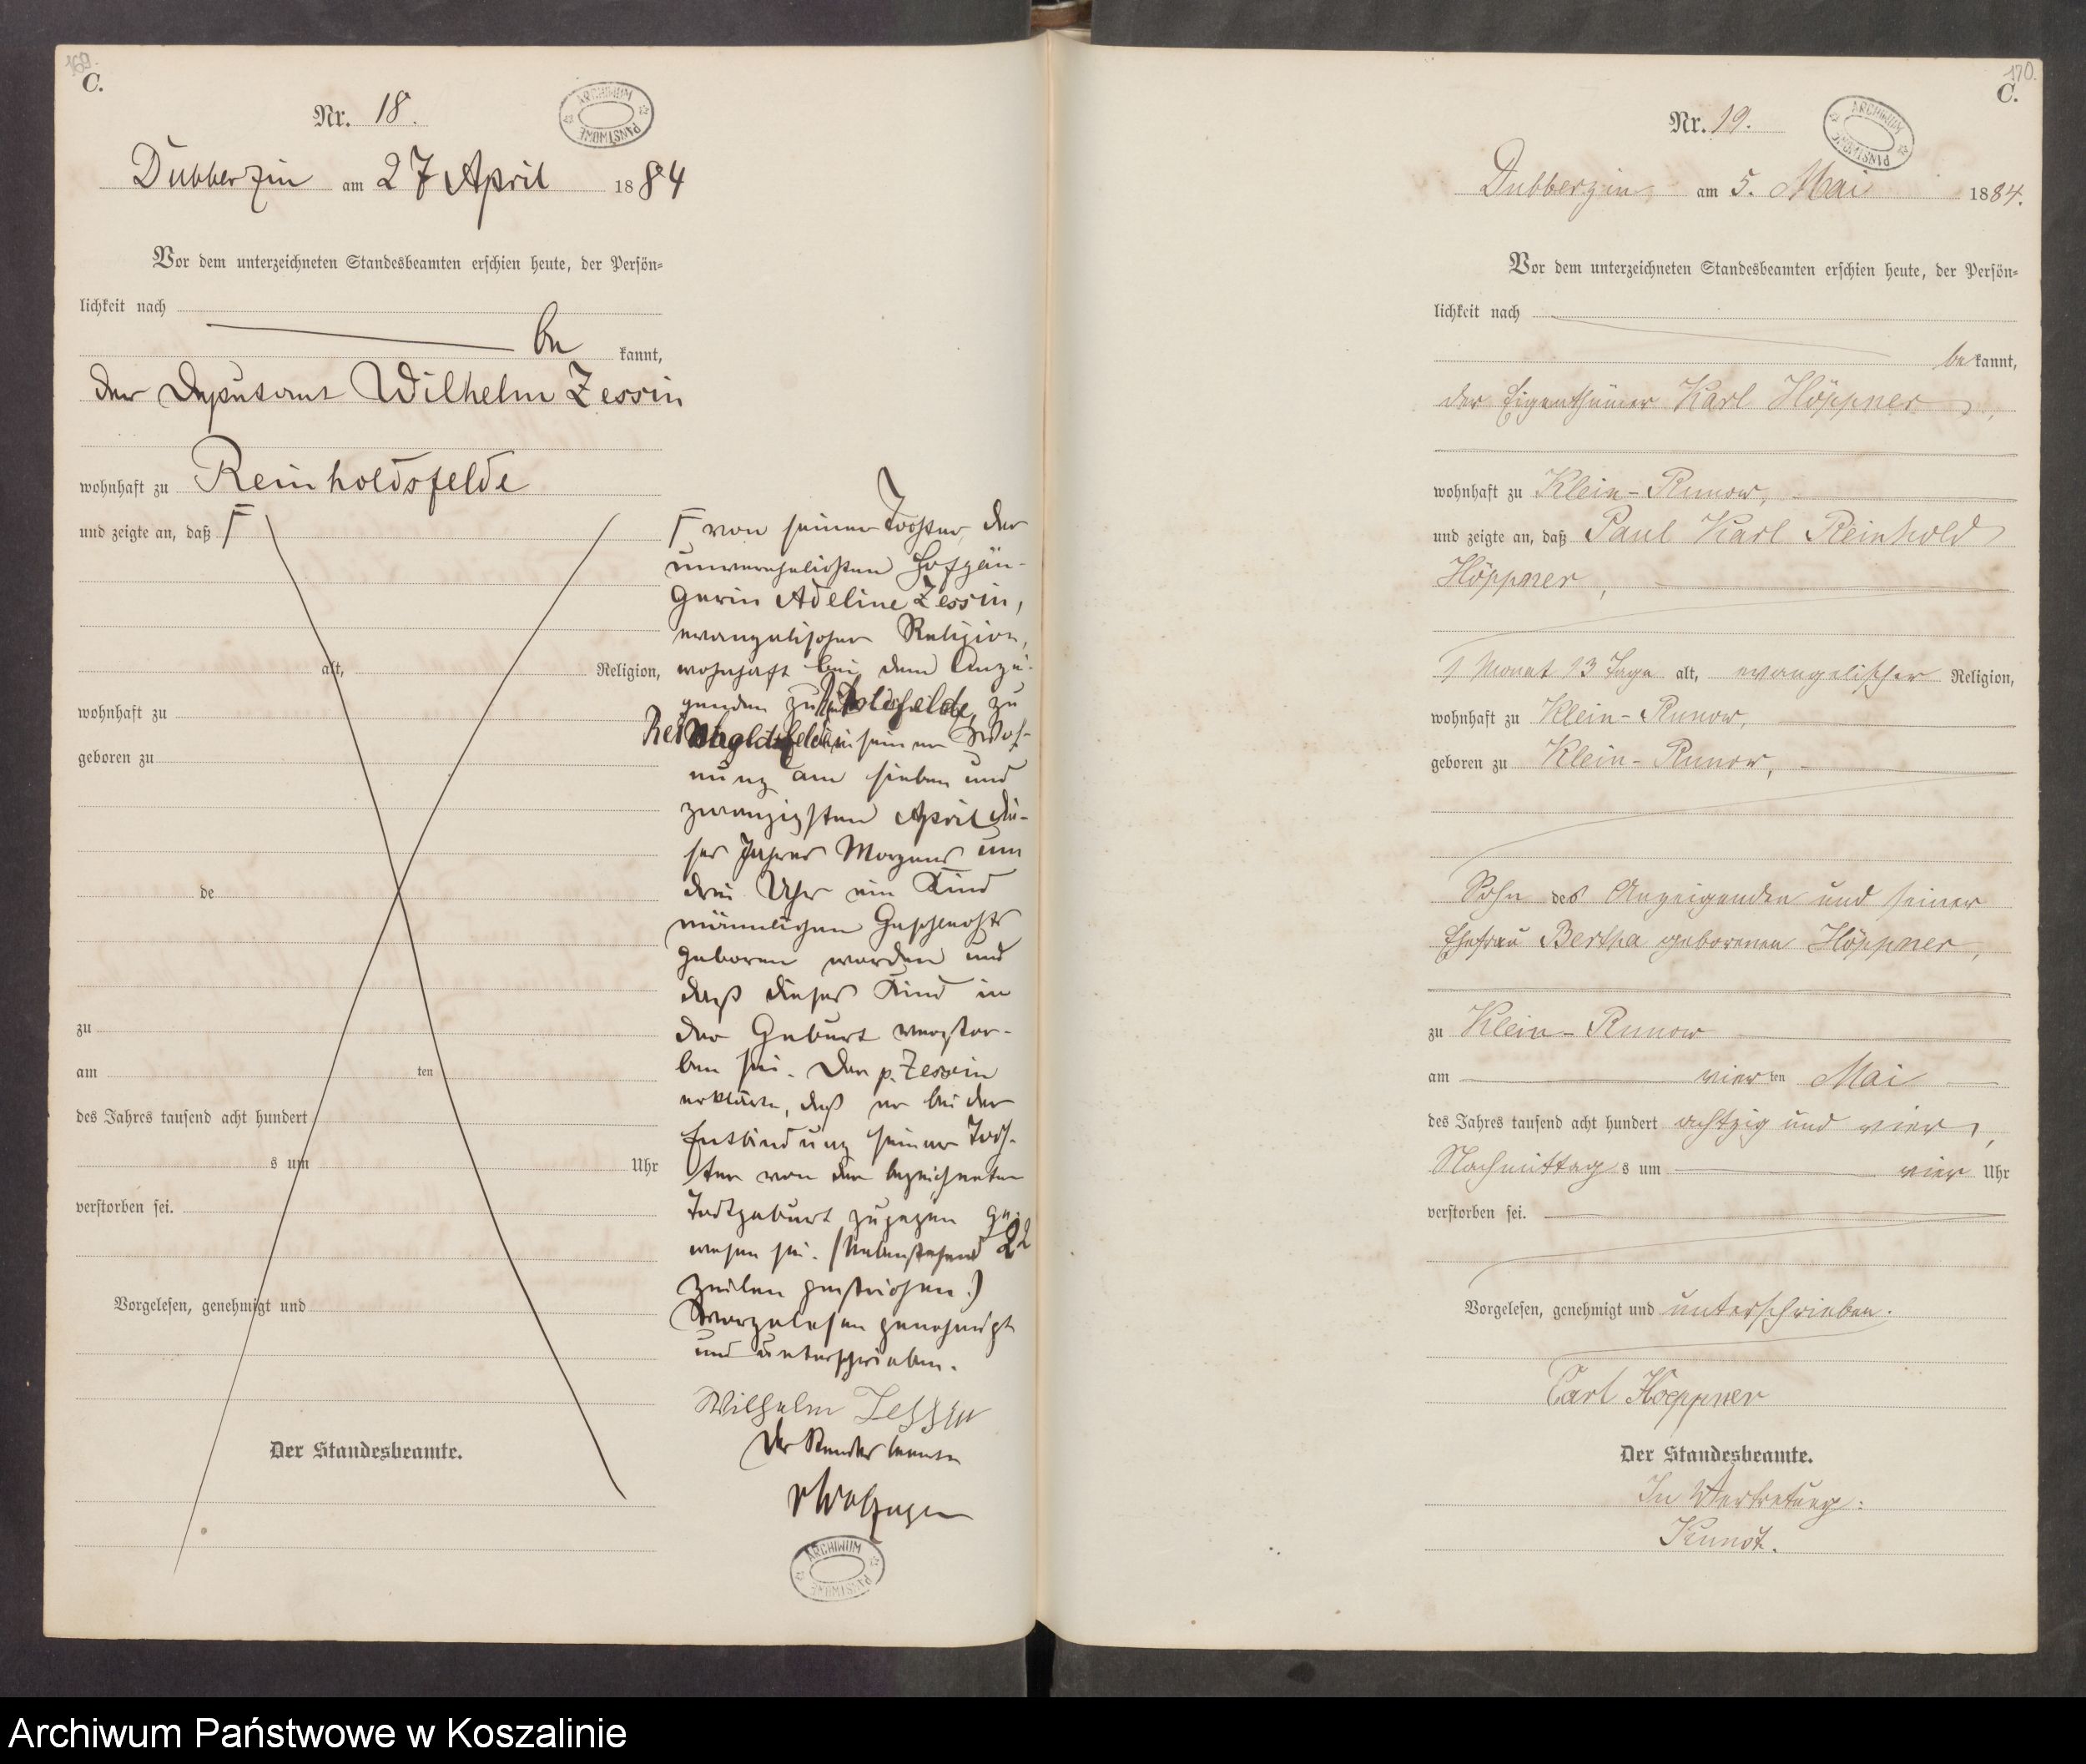 169.
C.
Nr. 18.
ARCHIWUM PAŃSTWOWE
Dubberzin am 27 April 1884
Vor dem unterzeichneten Standesbeamten erschien heute, der Persön-
lichkeit nach
be kannt,
der Deputant Wilhelm Zessin
wohnhaft zu Reinholdsfelde
und zeigte an, daß F
alt, Religion,
wohnhaft zu
geboren zu
de
zu
am ten
des Jahres tausend acht hundert
s um Uhr
verstorben sei.
Vorgelesen, genehmigt und
Der Standesbeamte.
F von seiner Tochter, der
unverehelichten Hofgän-
gerin Adeline Zessin,
evangelischer Religion,
wohnhaft bei dem Anzei-
genden zu Reinholdsfelde, zu
Reinholdsfelde in seiner Woh-
nung am sieben und
zwanzigsten April die-
ses Jahres Morgens um
drei Uhr ein Kind
männlichen Geschlechts
geboren worden und
daß dieses Kind in
der Geburt verstor-
ben sei. Der p. Zessin
erklärte, daß er bei der
Entbindung seiner Toch-
ter von der bezeichneten
Todtgeburt zugegen ge-
wesen sei. (Nebenstehend 22
Zeilen gestrichen.)
Vorgelesen genehmigt
und unterschrieben.
Wilhelm Zessin
Der Standesbeamte
ARCHIWUM PAŃSTWOWE
170.
C.
Nr. 19.
ARCHIWUM PAŃSTWOWE
Dubberzin am 5. Mai 1884.
Vor dem unterzeichneten Standesbeamten erschien heute, der Persön-
lichkeit nach
bekannt,
der Eigenthümer Karl Höppner,
wohnhaft zu Klein-Runow,
und zeigte an, daß Paul Karl Reinhold
Höppner,
1 Monat 13 Tage alt, evangelischer Religion,
wohnhaft zu Klein-Runow,
geboren zu Klein-Runow,
Sohn des Anzeigenden und seiner
Ehefrau Bertha geborenen Höppner,
zu Klein-Runow
am vierten Mai
des Jahres tausend acht hundert achtzig und vier,
Nachmittags um vier Uhr
verstorben sei.
Vorgelesen, genehmigt und unterschrieben.
Carl Hoeppner
Der Standesbeamte.
In Vertretung:
Archiwum Państwowe w Koszalinie